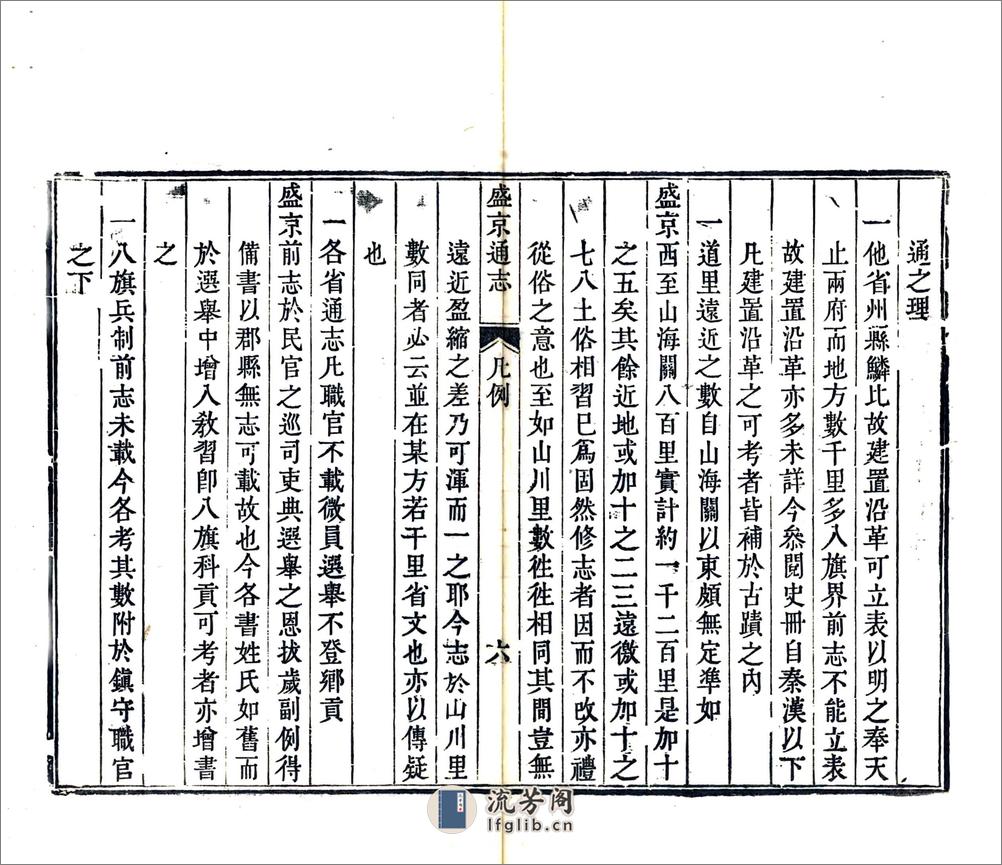 通之理
一他省州縣鱗比故建置沿革可立表以明之奉天
止兩府而地方數千里多入旗界前志不能立表
故建置沿革亦多未詳今叅閱史冊自秦漢以下
凡建置沿革之可考者皆補於古蹟之內
一道里遠近之數自山海關以東頗無定準如
盛京西至山海關八百里實計約一千二百里是加十
之五矣其餘近地或加十之二三遠徼或加十之
七八土俗相習已爲固然修志者因而不改亦禮
從俗之意也至如山川里數徃徃相同其間豈無
盛京通志 凡例 六
遠近盈縮之差乃可渾而一之耶今志於山川里
數同者必云並在某方若干里省文也亦以傳疑
也
一各省通志凡職官不載微員選舉不登鄉貢
盛京前志於民官之巡司吏典選舉之恩拔歲副例得
備書以郡縣無志可載故也今各書姓氏如舊而
於選舉中增入敎習卽八旗科貢可考者亦增書
之
一八旗兵制前志未載今各考其數附於鎭守職官
之下
流芳阁
lfglib.cn